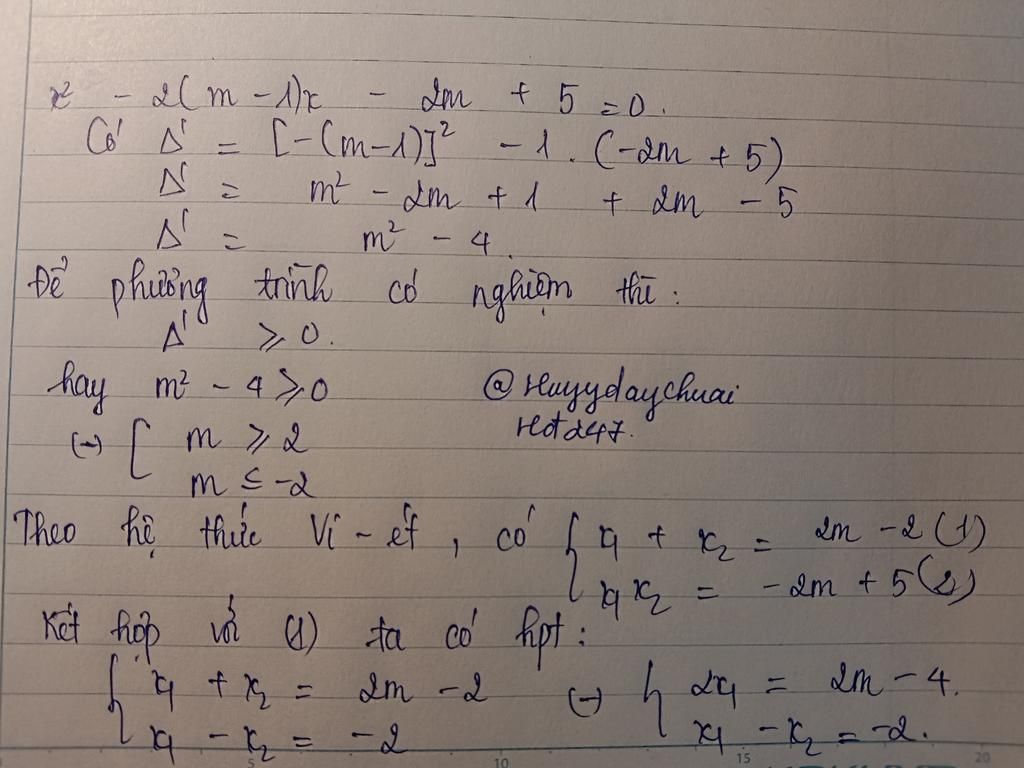 x² - 2(m - 1)x - 2m + 5 = 0.
Có Δ' = [-(m-1)]² - 1. (-2m + 5)
Δ' = m² - 2m + 1 + 2m - 5
Δ' = m² - 4.
Để phương trình có nghiệm thì:
Δ' ⩾ 0.
hay m² - 4 ⩾ 0
@Huyydaychuai
(->) [ m ⩾ 2
Hot247.
m ≤ -2
Theo hệ thức Vi-ét, có { x₁ + x₂ = 2m - 2 (1)
x₁x₂ = -2m + 5 (2)
Kết hợp với (1) ta có hpt:
{ x₁ + x₂ = 2m - 2 (->) { 2x₁ = 2m - 4.
x₁ - x₂ = -2 x₁ - x₂ = -2.
5 10 15 20